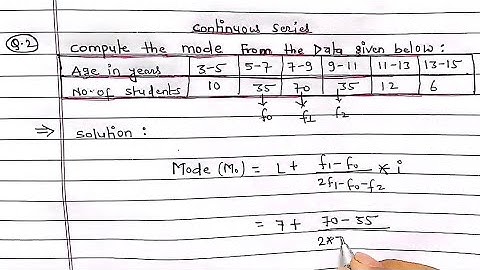 Continuous series
Q.2 Compute the mode from the Data given below :
Age in years 3-5 5-7 7-9 9-11 11-13 13-15
No. of students 10 35 70 35 12 6
f0 f1 f2
⇒ Solution :
Mode (Mo) = L + f1-f0 / 2f1-f0-f2 * i
= 7 + 70-35 / 2*7